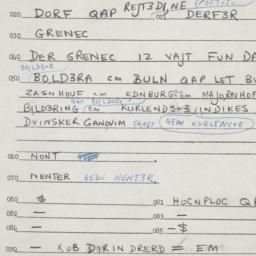 020 DORF QAP REJTƎDINE DERFƎR
030 GRENEC
040 DER GRENEC IZ VAJT FUN DA
050 BOLDƎRA CM BULN QAP LET BU
ZASNHOUF CM EDNBURG EM MAJORNHOF
BILDƎRING CM KURLENDS INDIKES
DVINSKER GANOVIM (GEON KURLENCIE)
060 NONT
070 NENTER GEON NENTƎR
080 $ 081 HOCNPLOC QA
082 — 083 —
084 — 085 — $
090 — XOB DARIN DRERD = EM